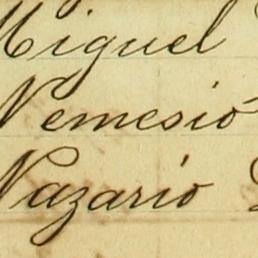 Miguel
Nemesio
Nazario